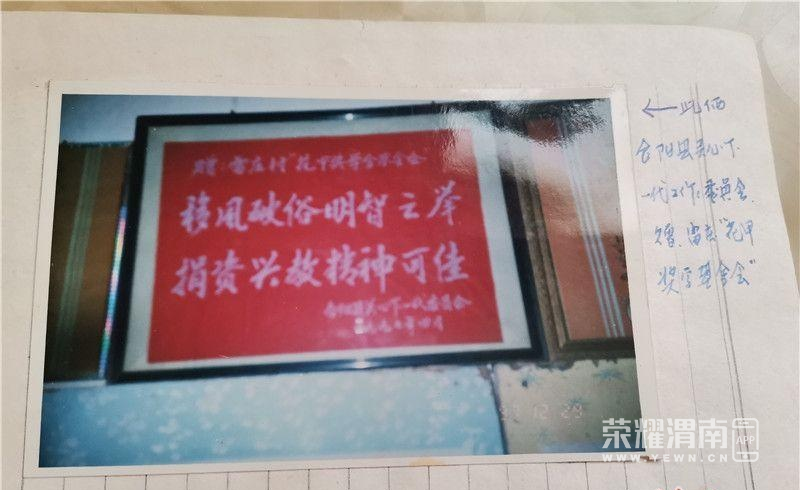 赠:雷庄村"花甲奖学会基金会
移风破俗明智之举
捐资兴教精神可佳
合阳县关心下一代委员会
一九九七年四月
97 12 29
←此俩
合阳县关心下
一代工作委员会
赠雷庄"花甲
奖学基金会"
荣耀渭南
WWW.YEWN.CN
APP